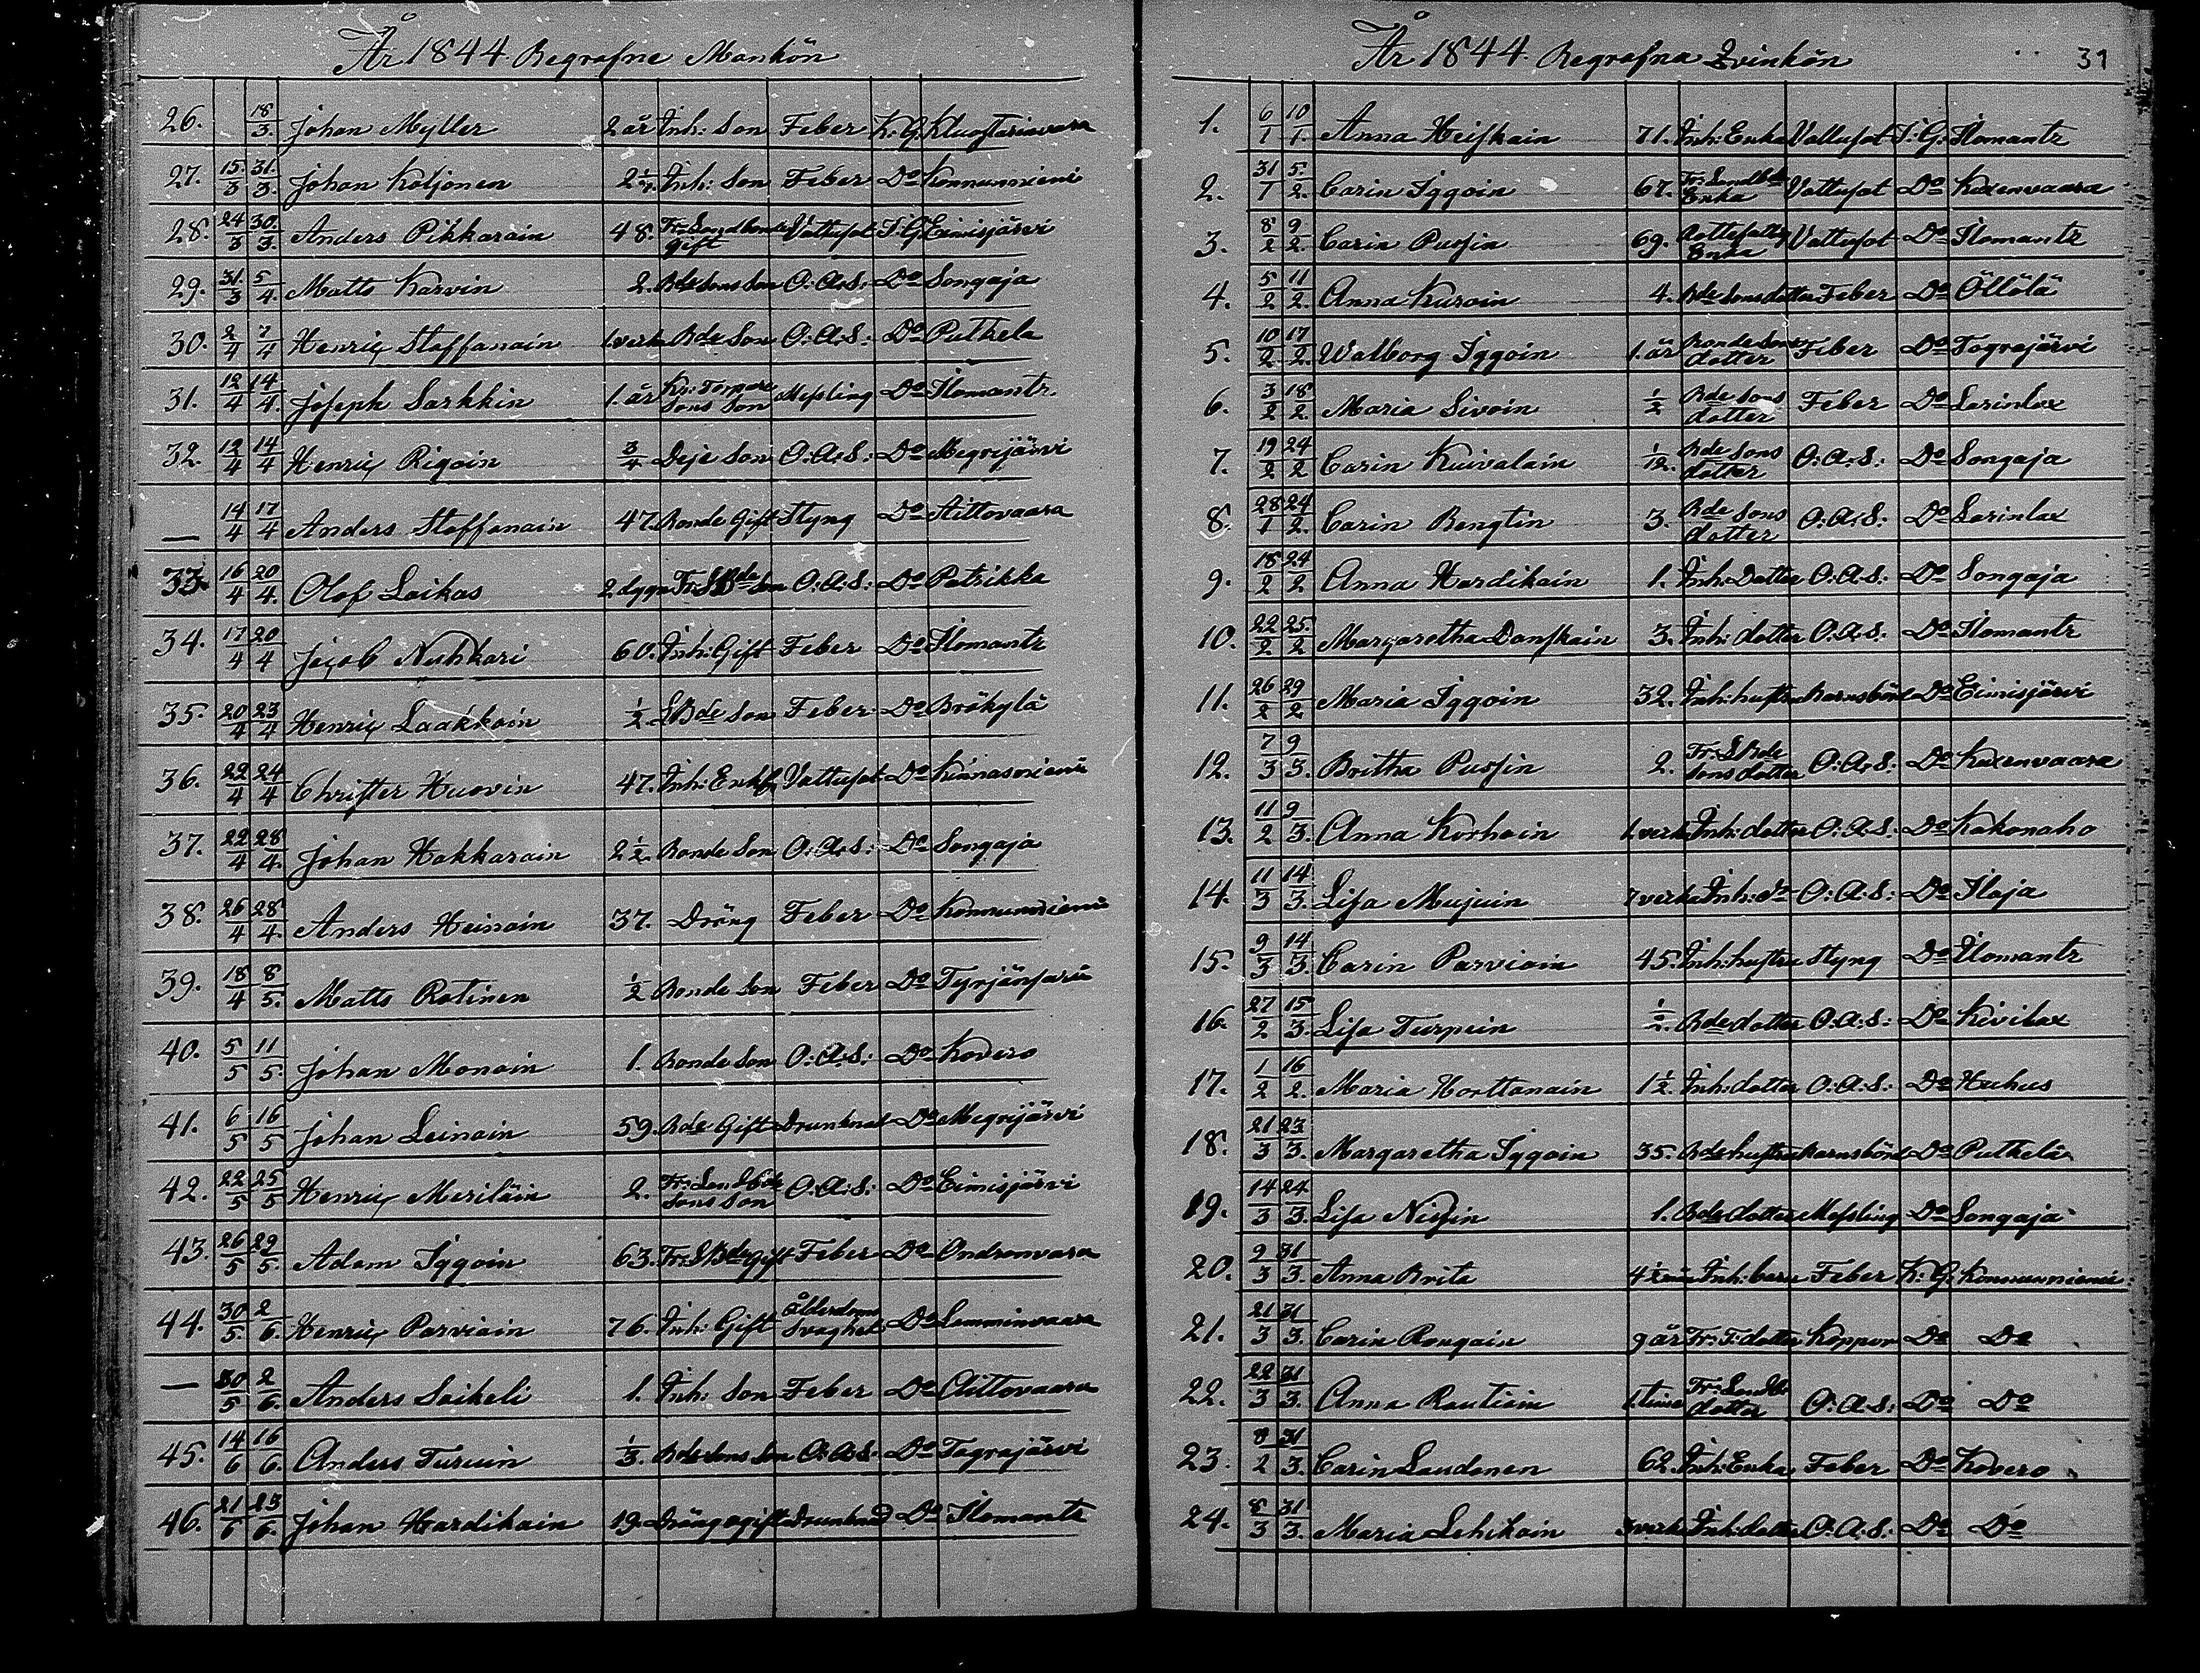 År 1844. Begrafne Mankön
26. 18/3. Johan Myller 2 år Inh: Son Feber K. G. Kluostarinvara
27. 15/3 31/3. Johan Koljonen Inh: Son Feber Do Konnunniemi
28. 24/3 30/3. Anders Pikkarain 48. Fr: Landbonde gift Vattusot I. G. Eimisjärvi
29. 31/3 5/4. Matts Karvin 2. Bde Sons Son O: A: S: Do Songaja
30. 2/4 7/4 Henric Staffanain 1. verk Bde Son O: A: S: Do Putkela
31. 12/4 14/4. Joseph Sarkkin 1. år Kr: Torpare Sons Son Messling Do Ilomantz.
32. 12/4 14/4 Henric Rigoin 3/4 Deje Son O: A: S: Do Megrijärvi
— 14/4 17/4 Anders Staffanain 47. Bonde Gift Styng Do Aittovaara
33. 16/4 20/4. Olof Laikas 2 dygn Fr: LBde Son O: A: S: Do Patrikka
34. 17/4 20/4 Jacob Nuhkari 60. Inh: Gift Feber Do Ilomantz
35. 20/4 23/4 Henric Laakkain 1/2. LBde Son Feber Do Brökylä
36. 22/4 24/4 Christer Huovin 47. Inh: Enkl. Vattusot Do Kinnasniemi
37. 22/4 28/4. Johan Hakkarain 2 1/2. Bonde Son O: A: S: Do Songaja
38. 26/4 28/4. Anders Heinain 37. Dräng Feber Do Konnunniemi
39. 18/4 8/5. Matts Rotinen 1/2 Bonde Son Feber Do Tyrjänsaari
40. 5/5 11/5. Johan Monain 1. Bonde Son O: A: S: Do Kovero
41. 6/5 16/5 Johan Leinain 59. Bde Gift Drunknat Do Megrijärvi
42. 22/5 25/5 Henric Meriläin 2. Fr: Land Bde Sons Son O: A: S: Do Eimisjärvi
43. 26/5 29/5. Adam Iggoin 63. Fr: LBde Gift Feber Do Ondronvara
44. 30/5. 2/6. Henric Parviain 76. Inh: Gift Ålderdoms Svaghet Do Lamminvaara
— 30/5 2/6. Anders Saikeli 1. Inh: Son Feber Do Aittovaara
45. 14/6 16/6. Anders Turuin 1/3. Bde Sons Son O: A: S: Do Tograjärvi
46. 21/6 23/6. Johan Hardikain 19. Dräng ogift Drunknad Do Ilomantz
År 1844. Begrafna Qvinkön 31
1. 6/1 10/1. Anna Heiskain 71. Inh: Enka Vattusot I: G: Ilomantz
2. 31/1 5/2. Carin Iggoin 67. Fr: Landbde Enka Vattusot Do Kuxenvaara
3. 8/2 9/2. Carin Pussin 69. Rotefattig Enka Vattusot Do Ilomantz
4. 5/2 11/2. Anna Kurain 4. Bde Sons dotter Feber Do Öllölä
5. 10/2 17/2. Walborg Iggoin 1. år Bonde Sons dotter Feber Do Tograjärvi
6. 3/2 18/2. Maria Sivoin 1/2 Bde Sons dotter Feber Do Larinlax
7. 19/2 24/2 Carin Kuivalain 1/12. Bde Sons dotter O: A: S: Do Songaja
8. 28/1 24/2. Carin Bengtin 3. Bde Sons dotter O: A: S: Do Larinlax
9. 18/2 24/2 Anna Hardikain 1. Inh: Dotter O: A: S: Do Songaja
10. 22/2 25/2 Margaretha Danskain 3. Inh: dotter O: A: S. Do Ilomantz
11. 26/2 29/2 Maria Iggoin 32. Inh: hustru Barnsbörd Do Eimisjärvi
12. 7/3 9/3. Britha Pussin 2. Fr: LBde Sons dotter O: A: S: Do Kuxenvaara
13. 11/2 9/3. Anna Korhoin 1. verk Inh: dotter O: A: S: Do Kokonaho
14. 11/3 14/3. Lisa Mujuin 7 verk Inh: Do O: A: S: Do Ilaja
15. 9/3 14/3. Carin Parviain 45. Inh: hustru Styng Do Ilomantz
16. 27/2 15/3. Lisa Turpein Bde dotter O: A: S: Do Kivilax
17. 1/2 16/2. Maria Horttanain 1 1/2. Inh: dotter O: A: S: Do Huhus
18. 21/3 23/3. Margaretha Iggoin 35. Bde hustru Barnsbörd Do Putkela
19. 14/3 24/3. Lisa Nissin 1. Bde dotter Messling Do Songaja
20. 9/3 31/3. Anna Brita Inh: barn Feber K: G: Konnunniemi
21. 21/3 31/3. Carin Rongain 9 år Fr: T: dotter Koppor Do Do
22. 22/3 31/3. Anna Rautiain 1. time Fr: Landb: dotter O: A: S: Do Do
23. 8/2 31/3. Carin Laudonen 62. Inh: Enka Feber Do Kovero
24. 8/3 31/3. Maria Lehikoin 3 verk Inh: dotter O: A: S: Do Do